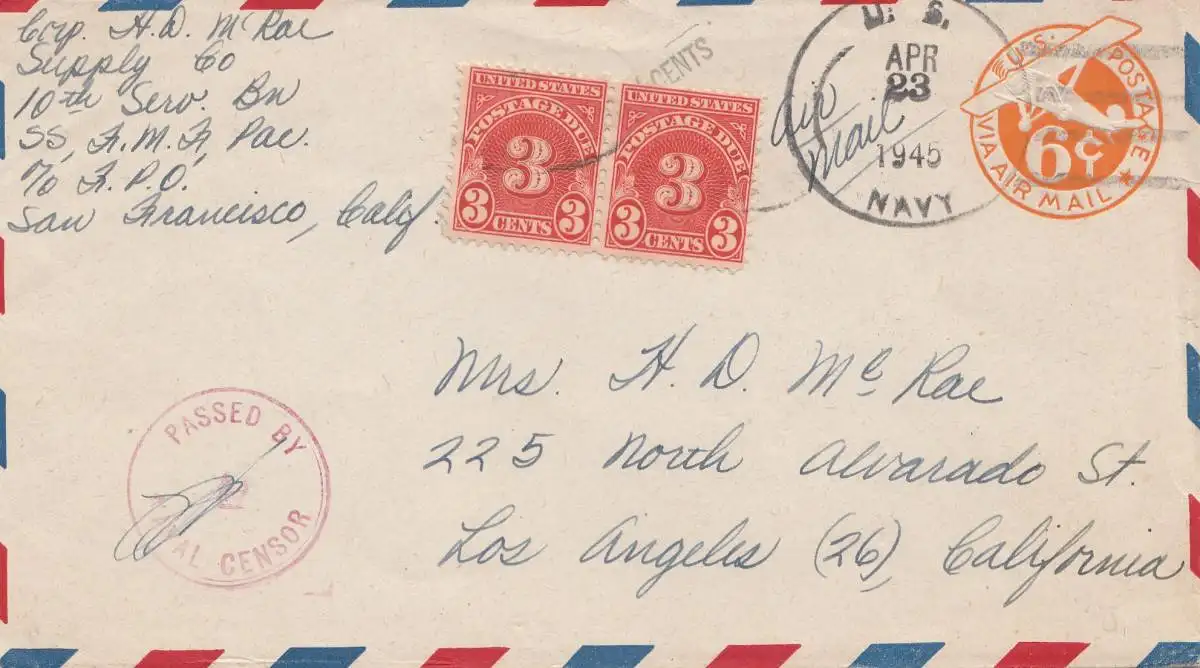 Corp. H. D. McRae
Supply Co
10th Serv. Bn
SS, F. M. F, Pac.
c/o F. P. O.
San Francisco, Calif
UNITED STATES
POSTAGE DUE
3
3 CENTS 3
UNITED STATES
POSTAGE DUE
3
3 CENTS 3
CENTS
air
mail
U. S.
APR
23
1945
NAVY
U.S. POSTAGE
6¢
VIA AIR MAIL
Mrs. H. D. McRae
225 North Alvarado St.
Los Angeles (26), California
PASSED BY
CENSOR